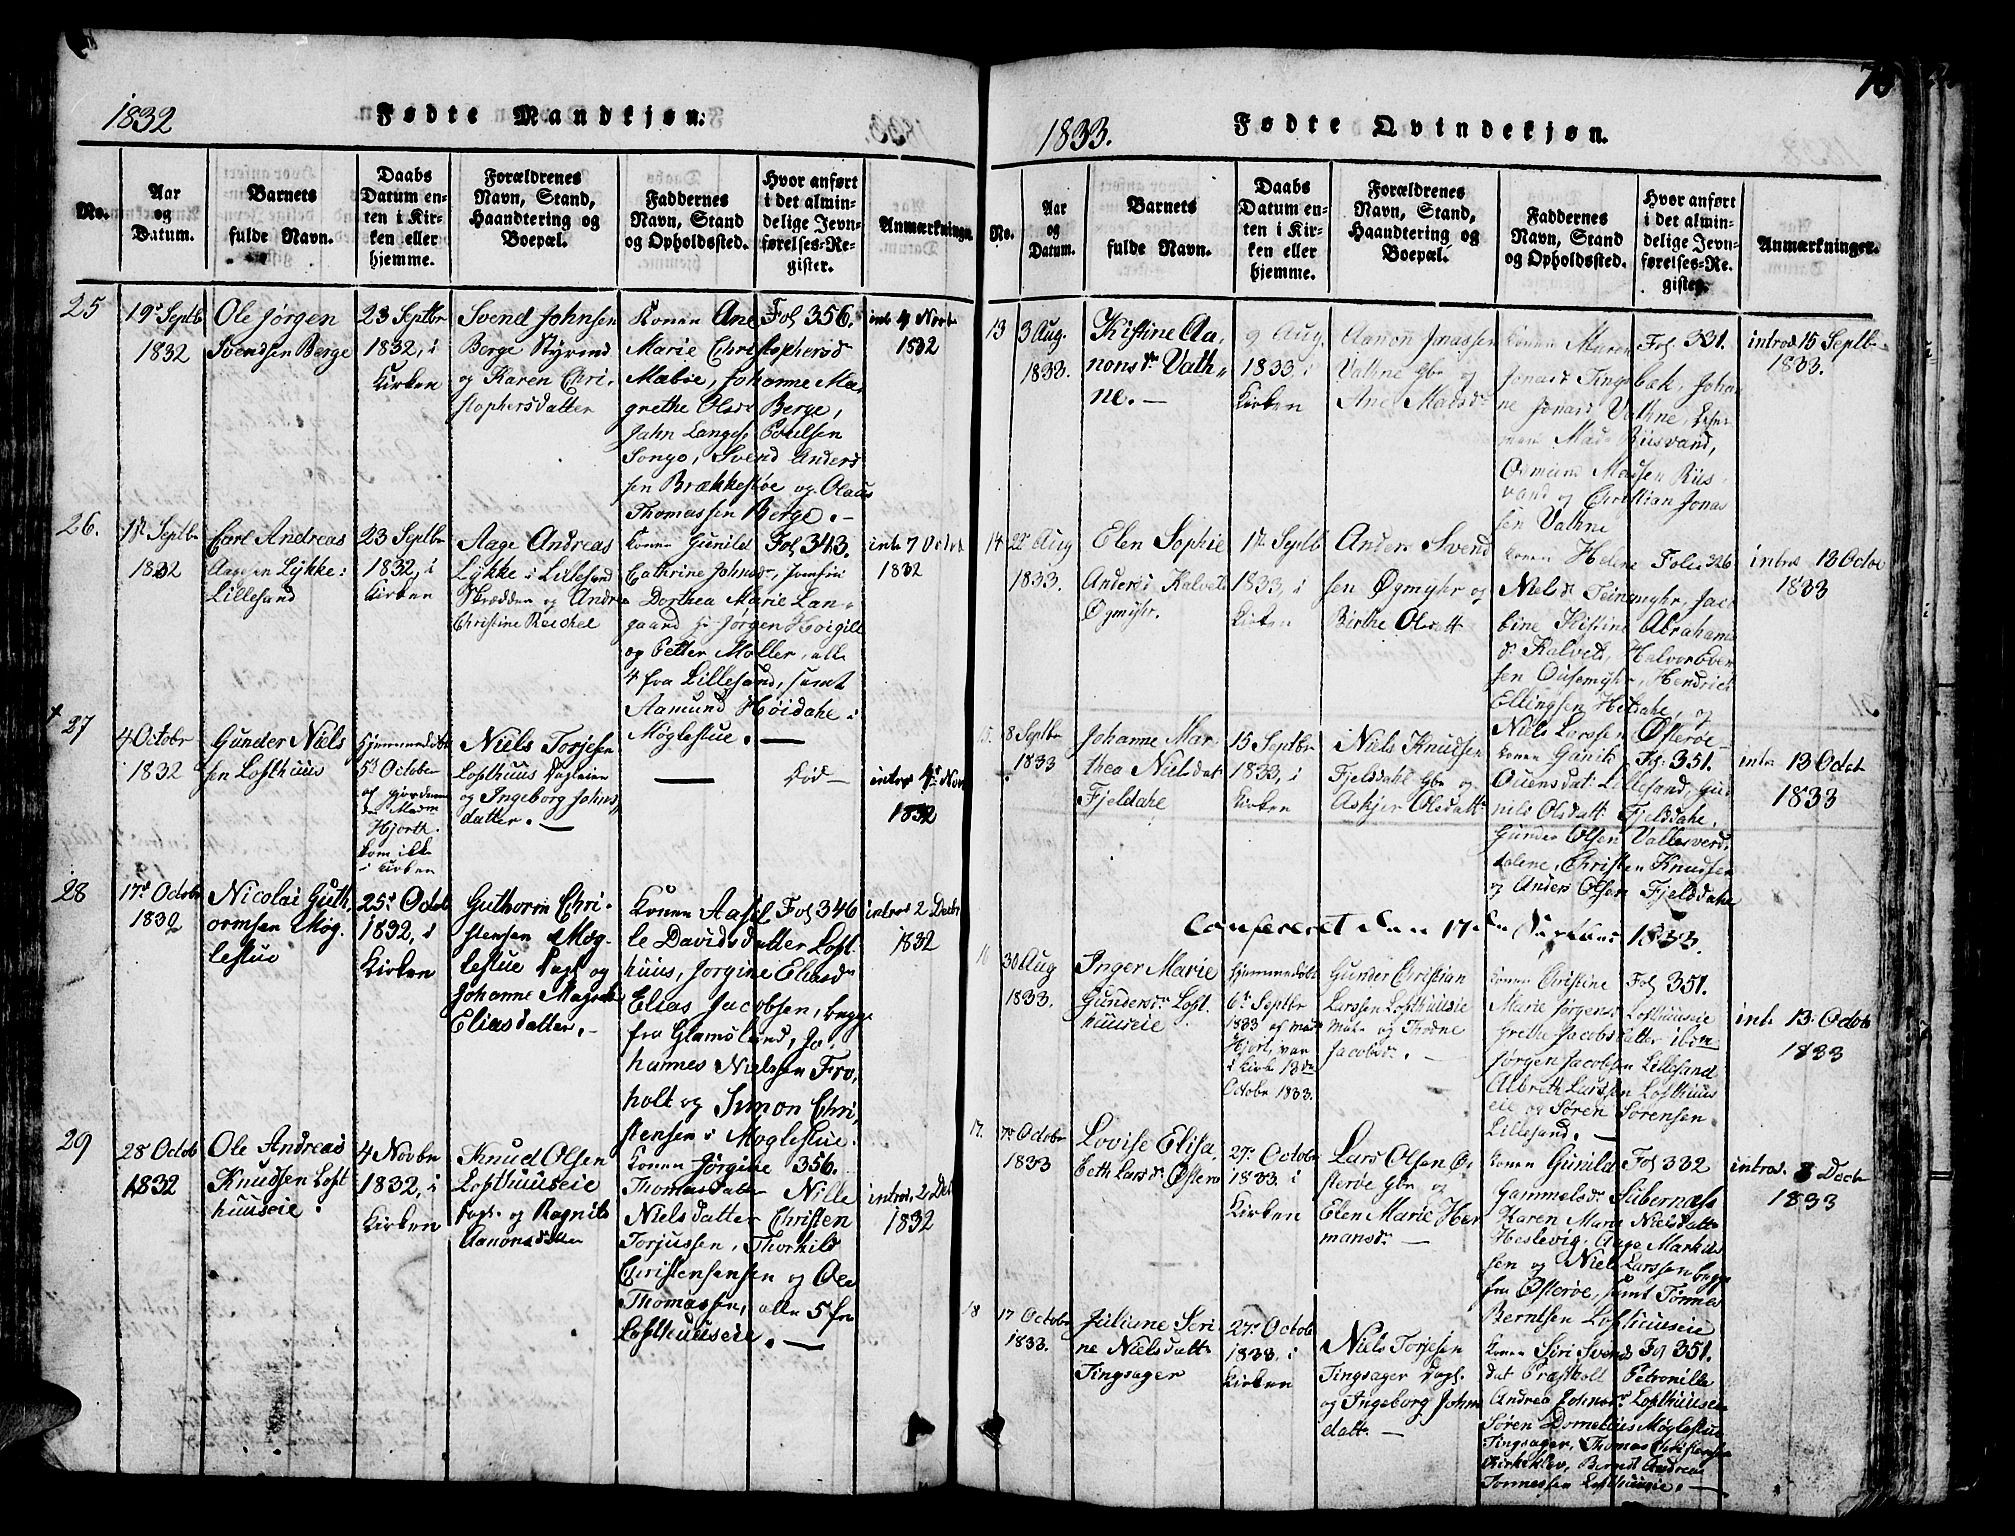 1832
Fødte Mandkjøn.
No.
Aar
og
Datum.
Barnets
fulde Navn.
Daabs
Datum en-
ten i Kir-
ken eller
hjemme.
Forældrenes
Navn, Stand,
Haandtering og
Boepæl.
Faddernes
Navn, Stand
og Opholdssted.
Hvor anført
i det almin-
delige Jevn-
førelses-Re-
gister.
Anmærkninger.
25
19de Septbr
1832
Ole Jørgen
Svendsen Berge
23 Septbr
1832, i
Kirken
Svend Johnsen
Berge
og Karen Chri-
stophersdatter
Konen Ane
Marie Christophersd
Mæbøe, Johanne Ma-
grethe Olsdr Berge,
Jahn Langes,
Songo, Svend Anders
sen Brækkestøe og Olaus
Thomassen Berge. –
Fol 356.
int 4 Novbr
1832
26.
Septbr
1832
Carl Andreas
Aagesen Lykke i
Lillesand
23 Septbr
1832, i
Kirken
Aage Andreas
Lykke i Lillesand
Skrædder og Andre
Christine Reichel
Konen Gunild
Cathrine Johnsdr, Jomfru
Dorthea Marie Lan-
gaard Hr Jørgen Høigill
og Petter Møller, alle
4 fra Lillesand, samt
Aamund Høidahl i
Møglestue. –
Fol 343.
int 7 Octobr
1832
27
4 Octobr
1832
Gunder Niels
sen Lofthuus
Hjemmedøbt
5d October
af Gjorde-
Madm
Hjorth
kom ikke
i Kirken
Niels Torjesen
Lofthuus
og Ingeborg Johns
datter. –
—
Død –
intros 4de Nov
1832
28
17de Octobr
1832
Nicolai Guth
ormsen Møg
lestue
25de Octob
1832, i
Kirken
Guthorm Chri-
stensen Møg-
lestue Dagl og
Johanne Magrete
Eliasdatter. –
Konen Aasil
le Davidsdatter Loft
huus, Jørgine Eliasdr
Elias Jacobsen, begge
fra Glamslund, Jo-
hannes Nielssen Fro-
holt og Simon Chri-
stensen i Møglestue.
Fol 346
intros 2 Decbr
1832
29
28 Octob
1832
Ole Andreas
Knudsen Loft
huuseie.
4 Novbr
1832, i
Kirken
Knud Olsen
Lofthuuseie
Dagl. og Ragnild
Aanonsdatter
Konen Jørgine
Thomasdatter Nille
Nielsdatter Christen
Torjussen, Thorkild
Christensensen og Ole
Thomassen, alle 5 fra
Lofthuuseie. –
356.
intros 2 Decbr
1832
1833.
Fødte Qvindekjøn.
No.
Aar
og
Datum.
Barnets
fulde Navn.
Daabs
Datum en-
ten i Kir-
ken eller
hjemme.
Forældrenes
Navn, Stand,
Haandtering og
Boepæl.
Faddernes
Navn, Stand
og Opholdssted.
Hvor anført
i det almin-
delige Jevn-
førelses-Re-
gister.
Anmærkninger.
13
3 Aug.
1833.
Kistine Aa-
nonsdr Vath-
ne. –
9 Aug.
1833, i
Kirken
Aanon Jonassen
Vathne Gbr og
Ane Madsdr
Konen Maren
Jonasd Tingsbæk, Johan
ne Jonasd Vathne,
Mads Riisvand,
Osmund Madsen Riis
vand og Christian Jonas
sen Vathne
Fol 331.
intros 15 Septbr
1833.
14
22 Aug
1833.
Elen Sophie
Andersd Kalvet
Øgmyhr.
Septb
1833, i
Kirken
Anders Svend
sen Øgmyhr og
Birthe Olsdatt
Konen Helene
Nielsd Teinemyhr, Jaco
bine Kistine Abrahams
dr Kalvet, Halvor
sen Ousemyhr, Hendrich
Ellingsen Heldahl, og
Niels Larssen Østerøe –
Folio 326
intros 13 Octobr
1833
15.
8 Septbr
1833
Johanne Mar-
thea Nielsdat
Fjeldahl
15 Septbr
1833, i
Kirken
Niels Knudsen
Fjelddahl Gbr og
Asbjør Olsdatt
Konen Ganite
Ouensdat Lillesand, Gud
nile Olsdatt Fjelddahl,
Gunder Olsen Vallesverd
dalene, Christen Knudsen
og Anders Olsen Fjelddahl
Fol. 351.
intr 13 Octobr
1833
Confereret den 17de 1833.
16
30 Aug
1833.
Inger Marie
Gundersdr Loft
huuseie
Hjemmedøbt
6te Septbr
1833 af Mad
Hjort, var
i Kirke 13de
Octobr 1833.
Gunder Christian
Larssen Lofthuuseie
og Thorne
Jacobsdr. –
Konen Christine
Marie Jørgensd Lofthuuseie
Grethe Jacobsdatter ibdm
Jørgen Jacobsen Lillesand
Albreth Larssen Lofthuus
eie og Søren Sørensen
Lillesand. –
Fol 351.
intr 13 Octobr
1833
17.
7de Octobr
1833
Lovise Elisa
beth Larsdr Østerø
27de Octobr
1833. i
Kirken
Lars Olsen Ø-
sterøe Gbr og
Elen Marie Her
mansdr –
Konen Gunild
Gammelsdr Subernæss
Karen Marie Nielsdatt
Heslevig, Aage Markus
sen og Niels Larssen begge
fra Østerøe, samt Tønnes
Berntsen Lofthuuseie
Fol 332
intros 8 Decbr
1833
18
17 Octobr
1833.
Juliane Seri
ne Nielsdatt
Tingsager
27de Octobr
1833. i
Kirken
Niels Torjesen
Tingsager Dagl.
og Ingeborg Johns
datt. –
Konen Siri Svends
dat Præstholt Petronille
Andrea Johnsdr Lofthuuseie
Søren Dorneliis Møglestue
Tingsager, Thomas Christensen
Kirkeklev, Berndt Andreas
Tønnessen Lofthuuseie. –
Fol 351.